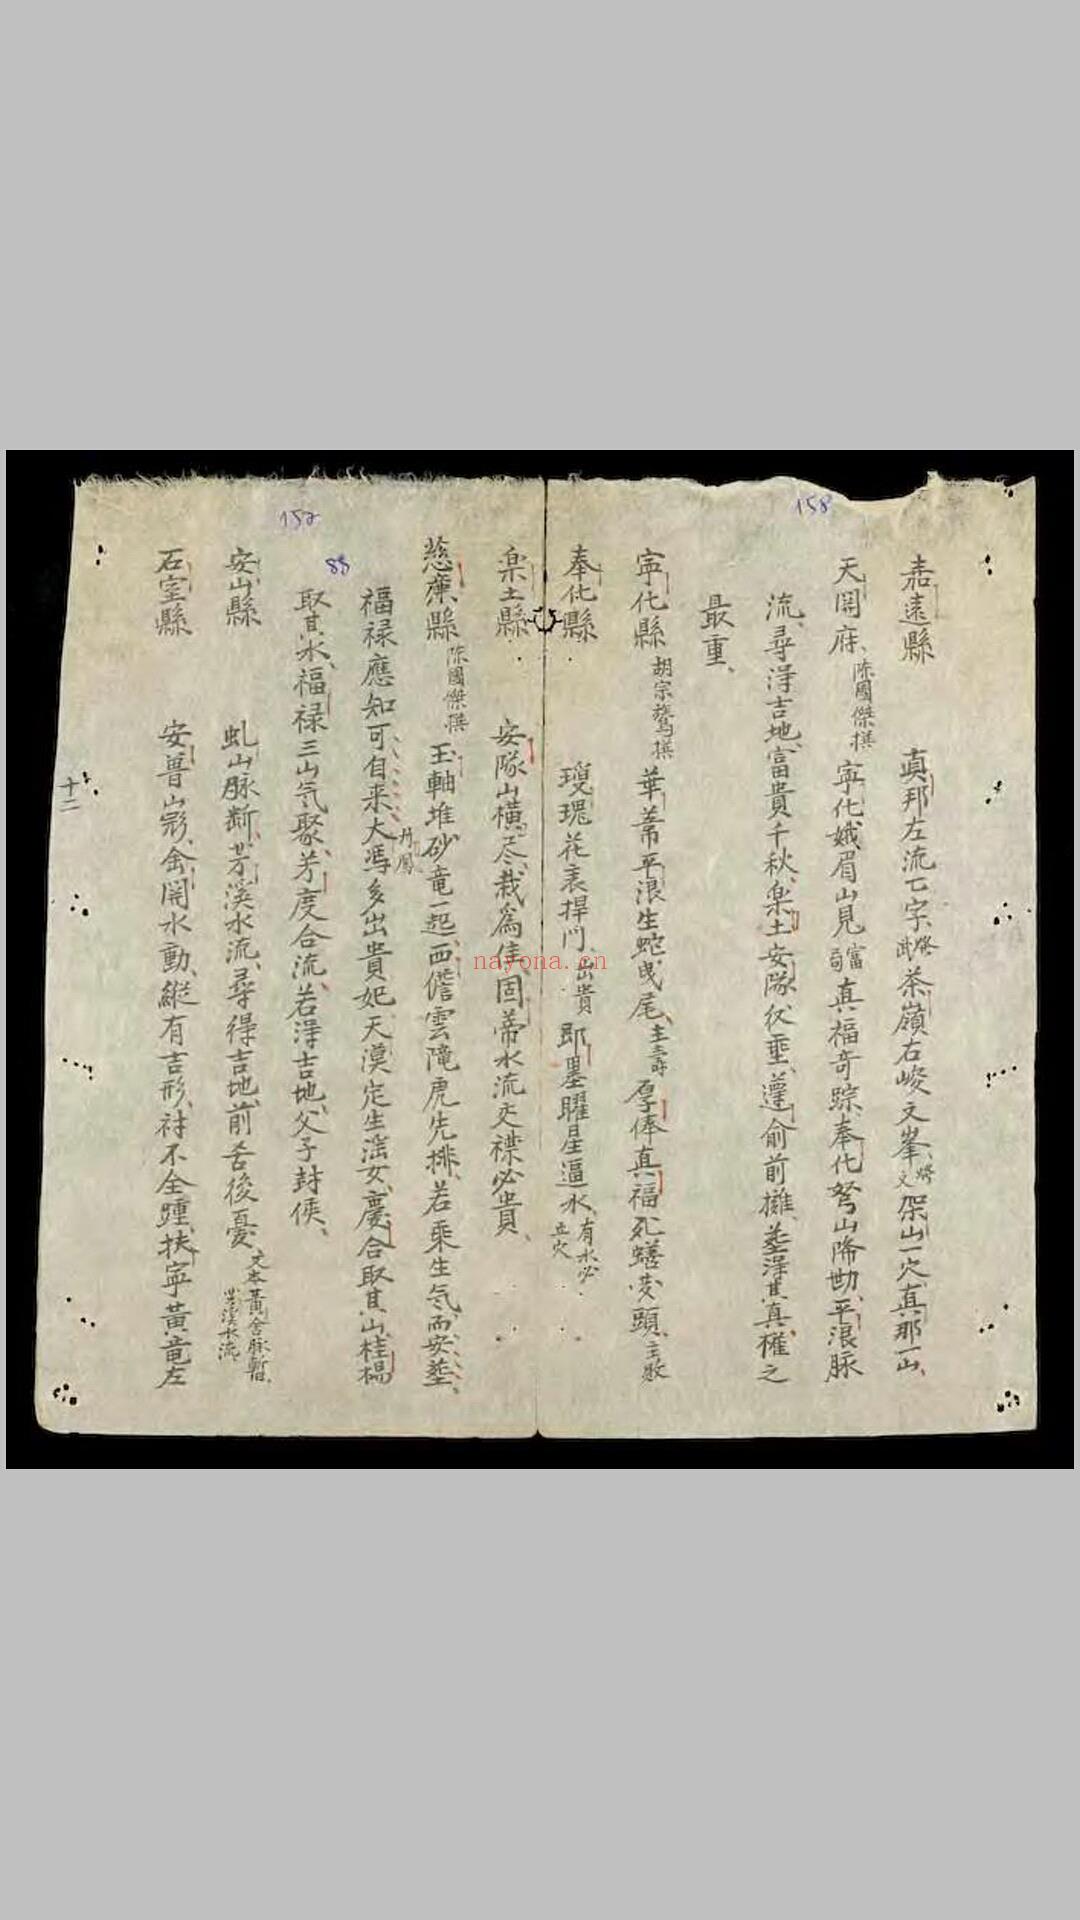 158
嘉遠縣 真邦左流丁字、發武茶嶺右峻文峯、發文架山一穴、真那一山、
天岡府、陳國傑撰 寧化娥眉山見富司真福奇踪、奉化弩山降勢、平浪脉
流、尋淂吉地、富貴千秋、樂土安隊伏垂、蓬俞前擁、塟淂其真、權之
最重、
寧化縣 胡宗鷟撰 華蒂平浪生蛇曳尾、主壽厚俸真福死蟮芨頭、主敗
奉化縣 瓊環花表捍門、出貴即墨曜星逼水、有水必立穴
楽土縣 安隊山橫尽、栽為佳、固蒂水流交襟必貴、
157
慈廉縣 陳國傑撰 玉軸堆砂、竜一起、西儋雲隴虎先排、若乘生気、而安塟、
88
福禄應知可自来、大馮丹鳳多出貴妃、天漠定生滛女、慶合取其山、桂楊
取其水、福禄三山気聚、芳度合流、若淂吉地、父子封侯、
安山縣 虬山脉断、芳溪水流、尋得吉地、前舌後憂、文本黃舍脉暫、芳溪水流
石室縣 安普山形、金関水動、縱有吉形、封不全踵、扶寧黃竜左
十二
nayona.cn